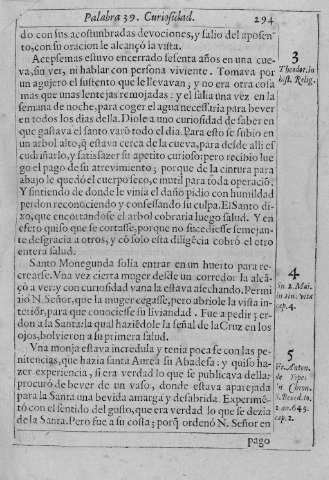 Palabra 39. Curiosidad. 294
do con sus acostunbradas devociones, y salio del aposen-
to, con su oracion le alcançó la vista.
Acepsemas estuvo encerrado sesenta años en una cue-
va, sin ver, ni hablar con persona viviente. Tomava por
un agujero el sustento que le llevavan, y no era otra cosa
mas que unas lentejas remojadas: y el salia una vez en la
semana de noche, para coger el agua necessaria para bever
en todos los dias della. Diole a uno curiosidad de saber en
que gastava el santo varō todo el dia. Para esto se subio en
un arbol alto, q̃ estava cerca de la cueva, para desde alli es
cudriñarlo, y satisfazer su apetito curioso: pero recibio lue
go el pago de su atrevimiento; porque de la cintura para
abajo le quedó el cuerpo seco, e inutil para toda operaciō.
Y sintiendo de donde le vinia el daño pidio con humildad
perdon reconociendo y confessando su culpa. El Santo di-
xo, que encortandose el arbol cobraria luego salud. Y en
efeto quiso que se cortasse, porque no sucediesse semejan-
te desgracia a otros, y cō solo esta diligēcia cobró el otro
entera salud.
3
Theodor. in
hist. Relig.
Santo Monegunda solia entrar en un huerto para re-
crearse. Una vez cierta muger desde un corredor la alcā-
çó a ver: y con curiosidad vana la estava asechando. Permi
tió N. Señor, que la muger cegasse, pero abriole la vista in-
terior, para que conociesse su liviandad. Fue a pedir per-
don a la Santa: la qual haziēdole la señal de la Cruz en los
ojos, bolvieron a su primera salud.
4
in 2. Maii
in eius vita
cap. 4.
Una monja estava incredula y tenia poca fe con las pe-
nitencias, que hazia santa Aurea su Abadesa: y quiso ha-
zer experiencia, si era verdad lo que se publicava della:
procuró de bever de un vaso, donde estava aparejada
para la Santa una bevida amarga y desabrida. Experimē-
tó con el sentido del gusto, que era verdad lo que se dezia
de la Santa. Pero fue a su costa: porq̃ ordenó N. Señor en
5
Fr. Anton.
de Yepes
in Chron.
S. Bened. to.
2. an. 645.
cap. 2.
pago